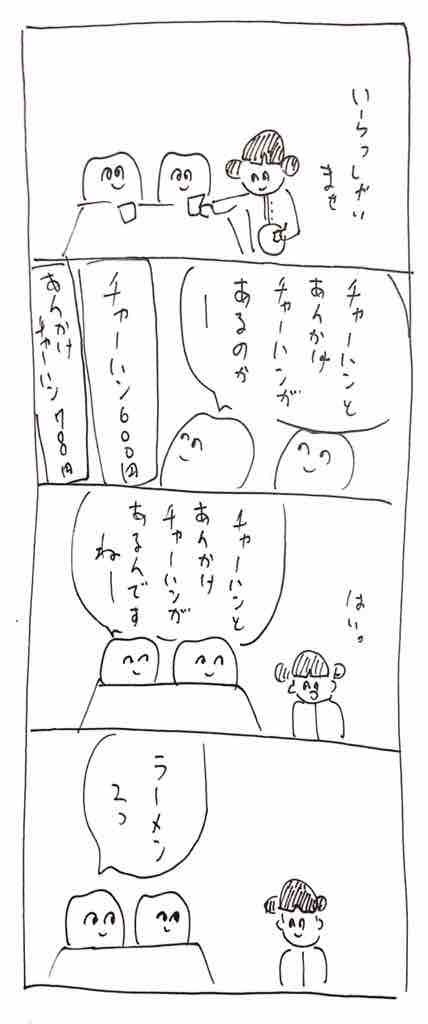 いらっしゃい
ませ
チャーハンと
あんかけ
チャーハンが
あるのか
ー
チャーハン600円
あんかけ
チャーハン780円
はい。
チャーハンと
あんかけ
チャーハンが
あるんです
ねー
ラーメン
2つ